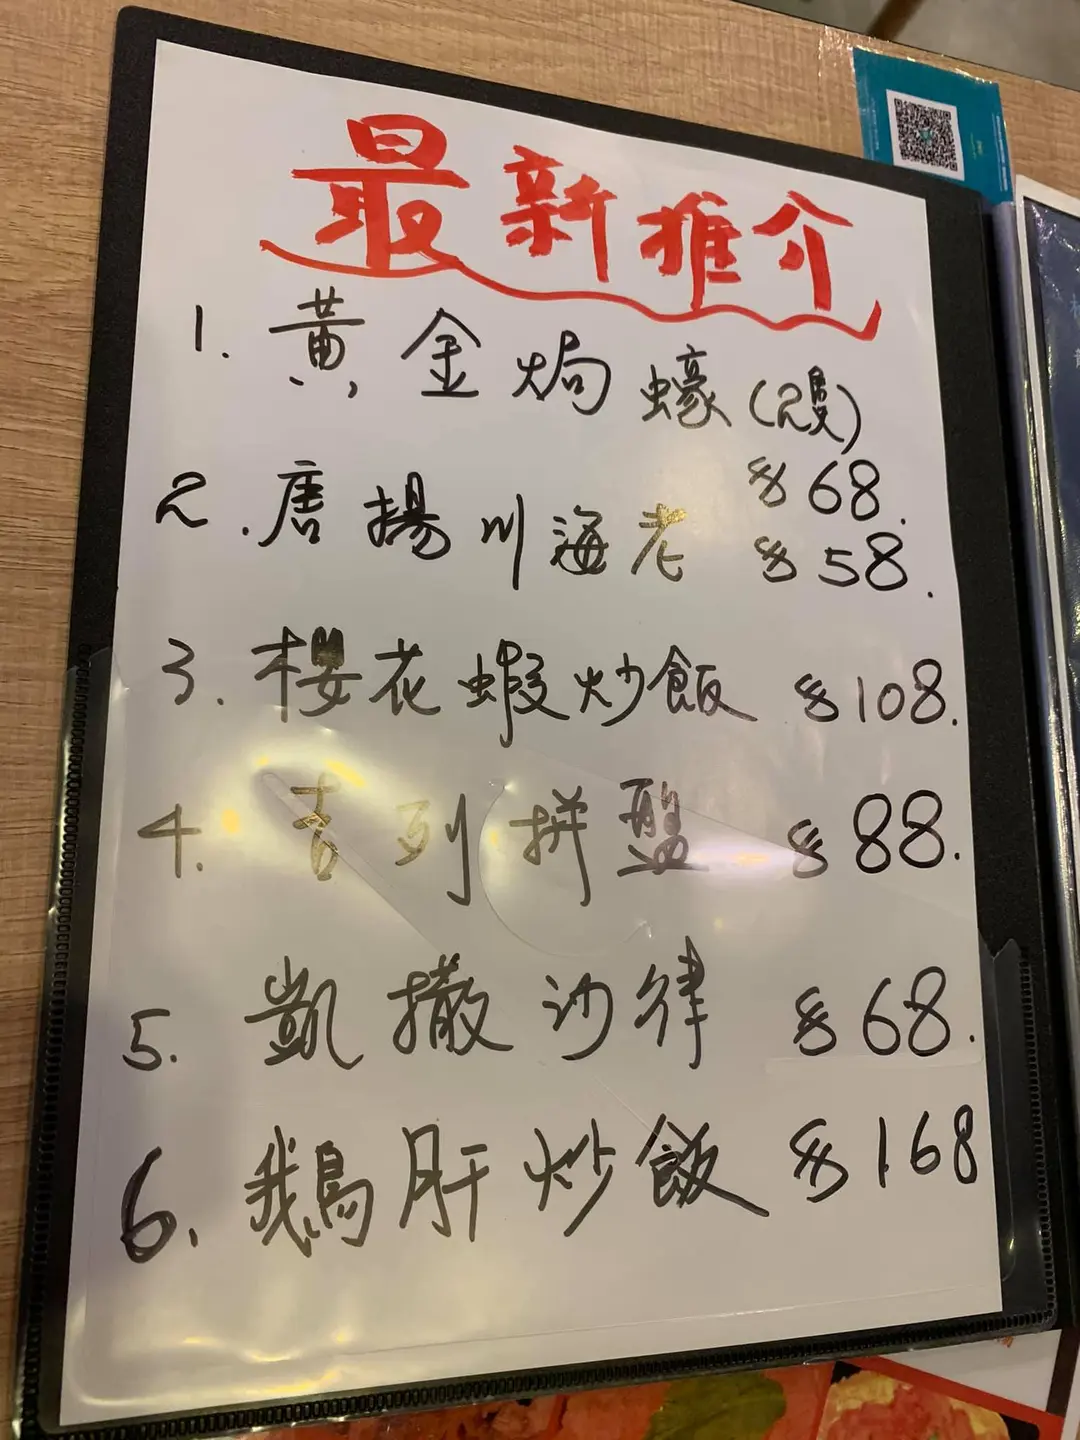 最新推介
1. 黃金焗蠔(2隻)
$68.
2. 唐揚川海老 $58.
3. 櫻花蝦炒飯 $108.
4. 吉列拼盤 $88.
5. 凱撒沙律 $68.
6. 鵝肝炒飯 $168